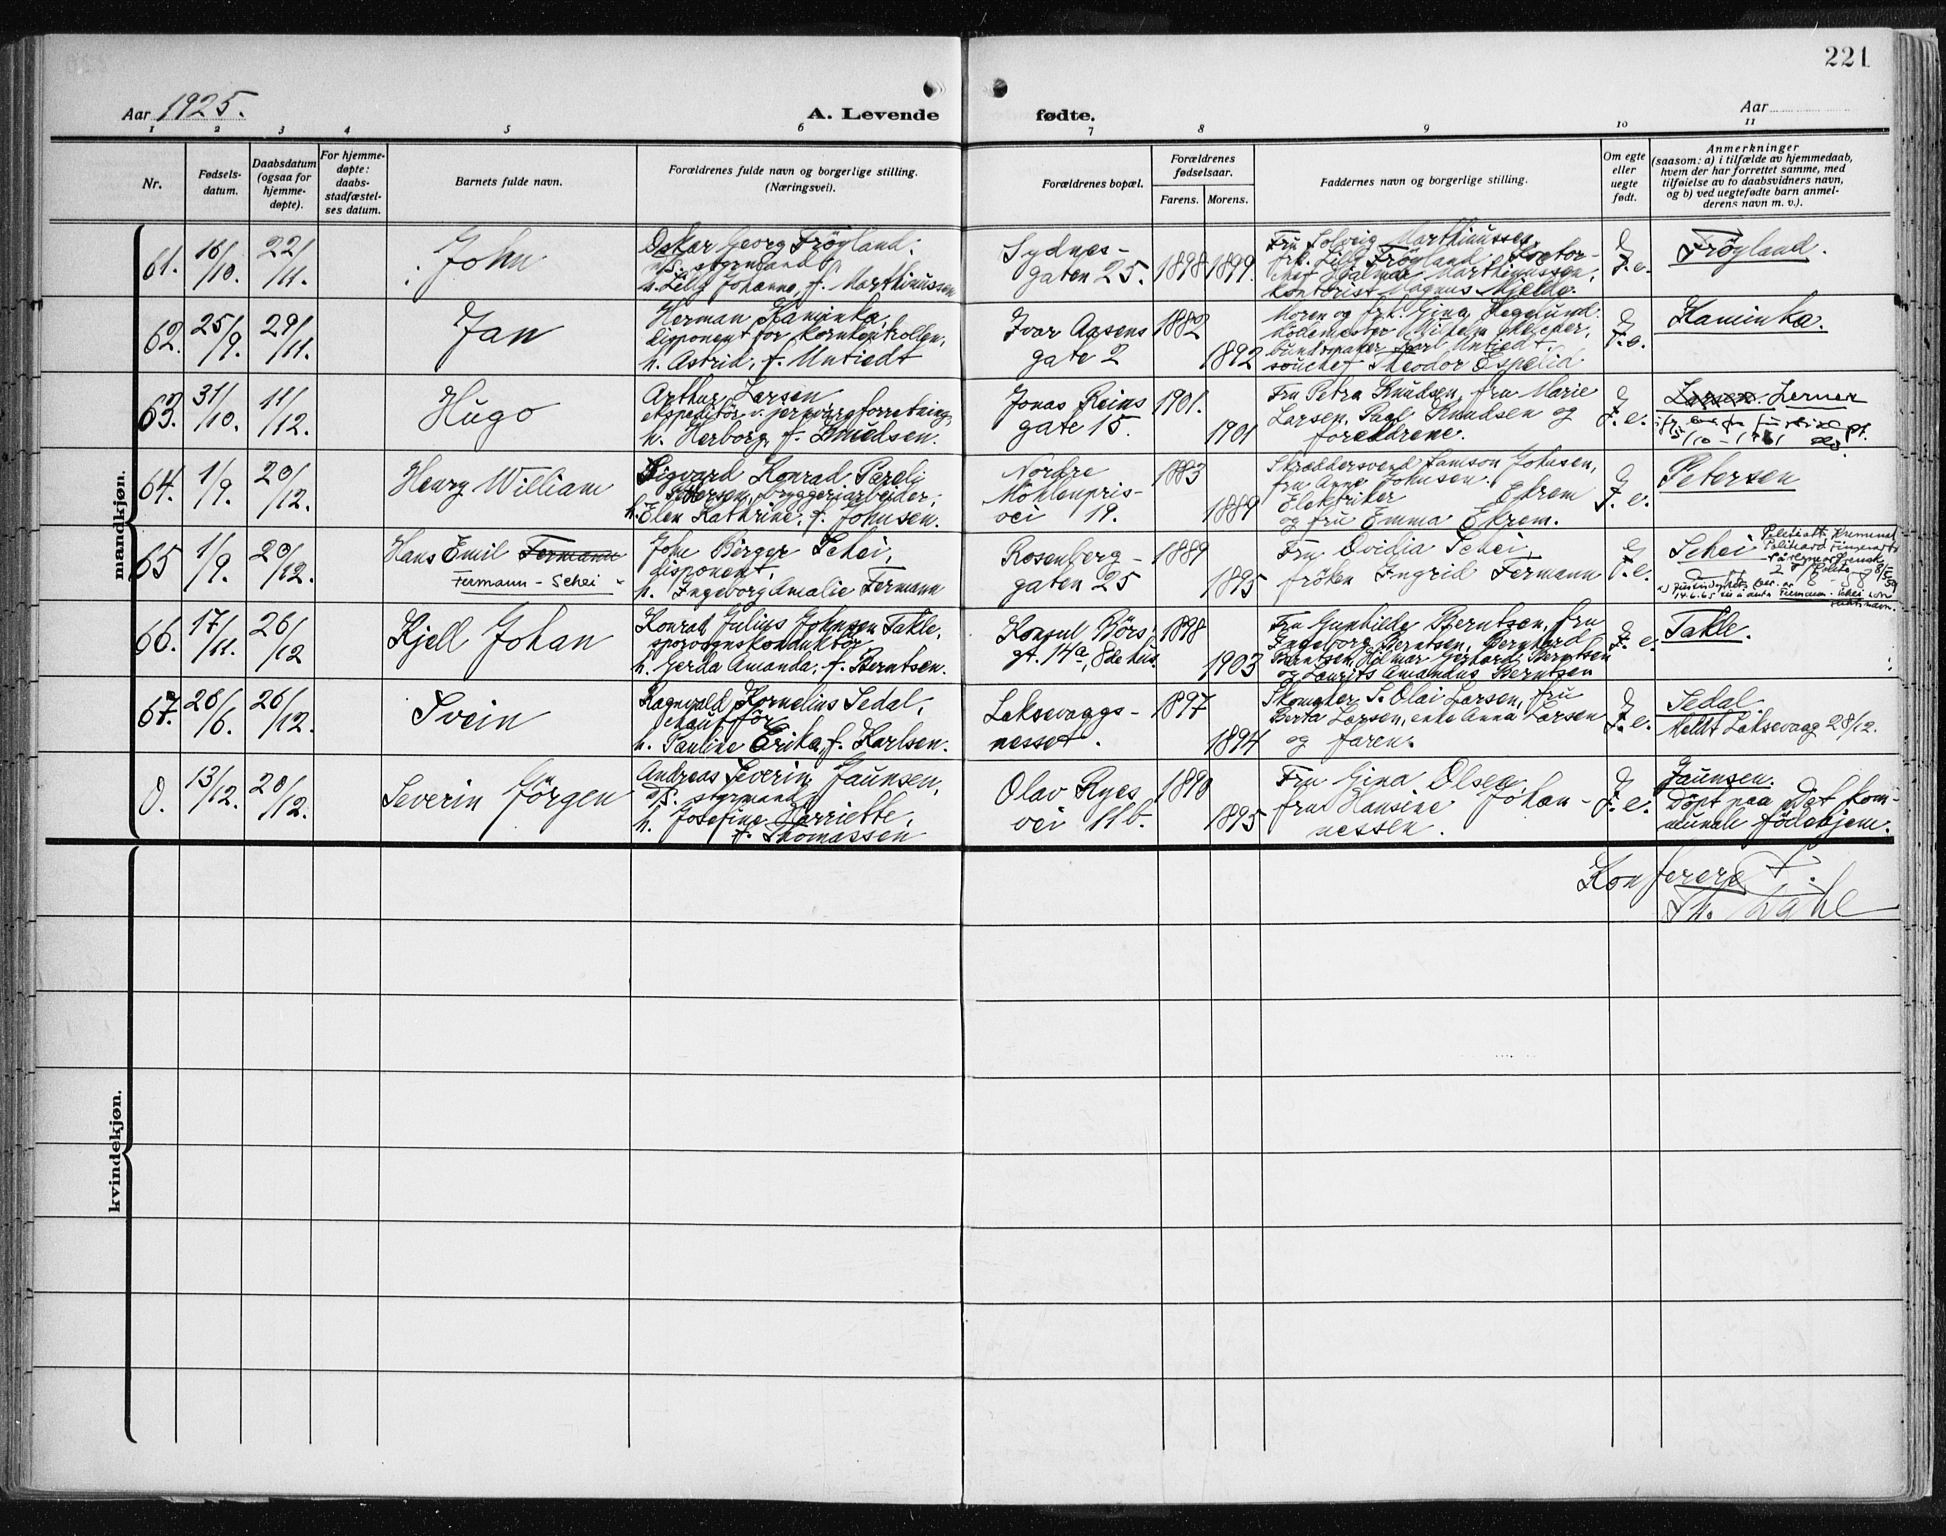 221
Aar 1925.
A. Levende fødte.
Aar
1 2 3 4 5 6 7 8 9 10 11
Nr.
Fødsels-
datum.
Daabsdatum
(ogsaa for
hjemme-
døpte).
For hjemme-
døpte:
daabs-
stadfæstel-
ses datum.
Barnets fulde navn.
Forældrenes fulde navn og borgerlige stilling.
(Næringsvei).
Forældrenes bopæl.
Forældrenes
fødselsaar.
Farens. Morens.
Faddernes navn og borgerlige stilling.
Om egte
eller
uegte
født.
Anmerkninger
(saasom: a) i tilfælde av hjemmedaab,
hvem der har forrettet samme, med
tilføielse av to daabsvidners navn,
og b) ved uegtefødte barn anmel-
derens navn m. v.).
mandkjøn.
61. 16/10. 22/11. John
Oskar Georg Frøyland,
styrmand
h. Lilly Johanne, f. Marthinussen
Sydnes-
gaten 25.
1898 1899.
Fru Solveig Marthinussen,
frk. Lilly Frøyland
Hjalmar Marthinussen,
kontorist Magnus Mjelde.
F. e.
Frøyland.
62. 25/9. 29/11. Jan
Herman Kaminka,
disponent for kornkontrollen,
h. Astrid, f. Untiedt
Ivar Aasens
gate 2
1882 1892
Moren og frk. Gina Hegelund.
Wilhelm
Karl Untiedt,
Theodor Espelid.
F. e.
Kaminka.
63. 31/10. 11/12. Hugo
Arthur Larsen
ekspeditör v. jernvareforretning,
h. Herborg, f. Knudsen.
Jonas Reins
gate 15.
1901. 1901
Fru Petra Knudsen, fru Marie
Larsen, Knudsen og
forældrene.
F. e.
Larsen. Lerner
64. 1/9. 20/12. Henry William
Sigvard Konrad Pareli
Petersen, bryggeriarbeider,
h. Elen Kathrine, f. Johnsen.
Nordre
Möhlenpris-
vei 19.
1883 1889
Skræddersvend Samson Johnsen,
fru Anna Johnsen,
Elektriker Ekrem
og fru Emma Ekrem.
F. e.
Petersen
65 1/9. 20/12. Hans Emil Fermann
Fermann - Schei
John Birger Schei,
disponent,
h. Ingeborg Amalie Fermann
Rosenberg-
gaten 25
1889 1895
Fru Ovidia Schei,
frøken Ingrid Fermann
F. e.
Schei
14.6.65 Fermann - Schei som
66. 17/11. 26/12 Kjell Johan
Konrad Julius Johnsen Takle,
sporvognskonduktör
h. Gerda Amanda, f. Berntsen.
Konsul Börs
gt. 14a, 8de hus.
1898 1903
Fru Gunhilde Berntsen, fru
Ingeborg Berntsen, Bernhard
Berntsen, Hilmar Gerhard Berntsen
og Laurits Amandus Berntsen
F. e.
Takle.
67. 26/6. 26/12. Svein
Ragnvald Kornelius Sedal,
chauffør
h. Pauline Erika, f. Karlsen.
Laksevaags-
nesset.
1897 1894
Skomaker S. Olai Larsen, fru
Berta Larsen, enke Anna Larsen
og faren.
F. e.
Sedal.
Meldt Laksevaag 28/12.
0. 13/12. 20/12. Severin Jörgen
Andreas Severin Jaunsen,
styrmand
h. Josefine Harriette,
f. Thomassen
Olav Ryes
vei 11b.
1890 1895
Fru Gina Olsen,
fru Hansine Johan-
nessen.
F. e.
Jaunsen.
Döpt paa Det kom-
munale fødehjem.
Konfereret.
Th. Dahl
kvindekjøn.